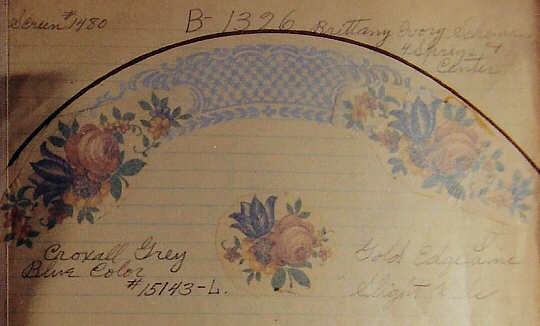 Screen #1480
B-1326 Brittany Ivory
4 Sprays &
Center
Croxall Grey
Blue Color
#15143-L.
Gold Edge Line
Slight